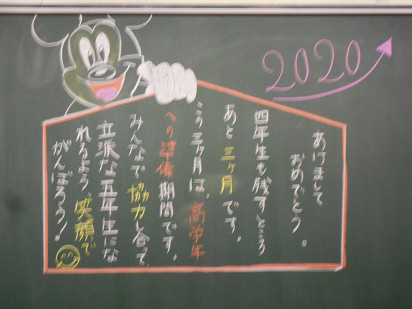 2020
あけまして
おめでとう。
四年生も残すところ
あと三ヶ月です。
この三ヶ月は、高学年
への準備期間です。
みんなで協力し合って、
立派な五年生にな
れるよう、笑顔で
がんばろう！